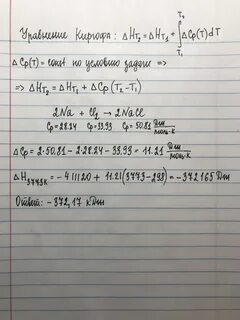 Уравнение Кирхгофа: ΔHT₂ = ΔHT₁ + ∫T₁T₂ ΔCp(T)dT
ΔCp(T) = const по условию задачи =>
=> ΔHT₂ = ΔHT₁ + ΔCp(T₂ - T₁)
2Na + Cl₂ → 2NaCl
Cp = 28.24 Cp = 33.93 Cp = 50.81 Дж/моль·К
ΔCp = 2·50.81 - 2·28.24 - 33.93 = 11.21 Дж/моль·К
ΔH3773K = -411120 + 11.21(3773-298) = -372165 Дж
Ответ: -372,17 кДж